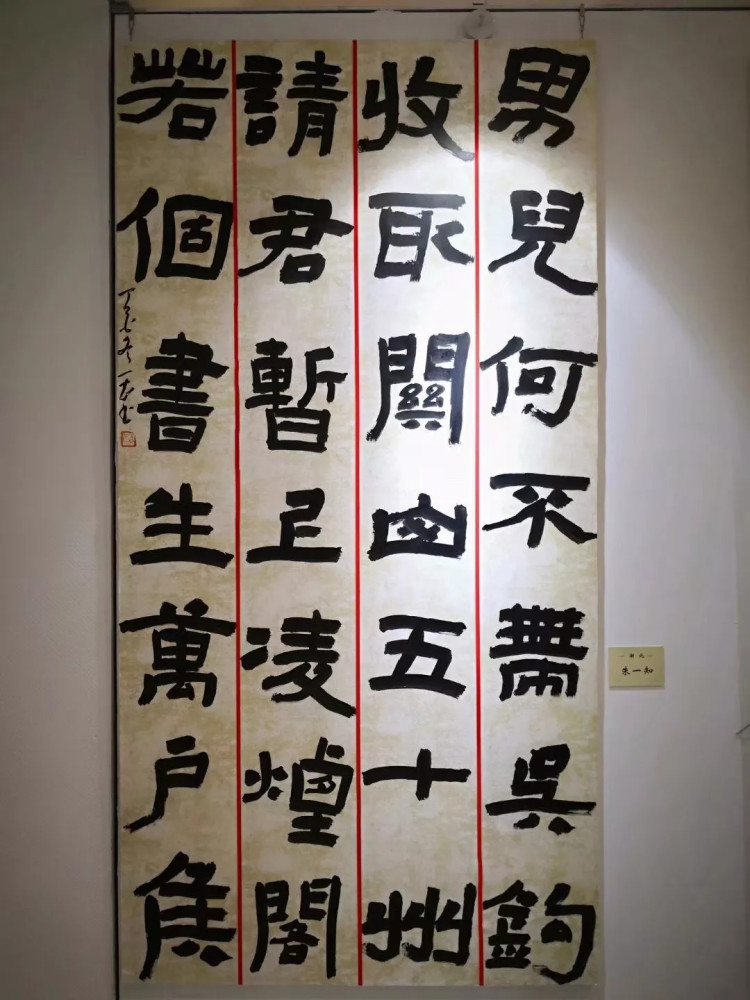 男兒何不帶吳鉤
收取關山五十州
請君暫上凌煙閣
若個書生萬戶侯
丁酉冬一知书
朱一知